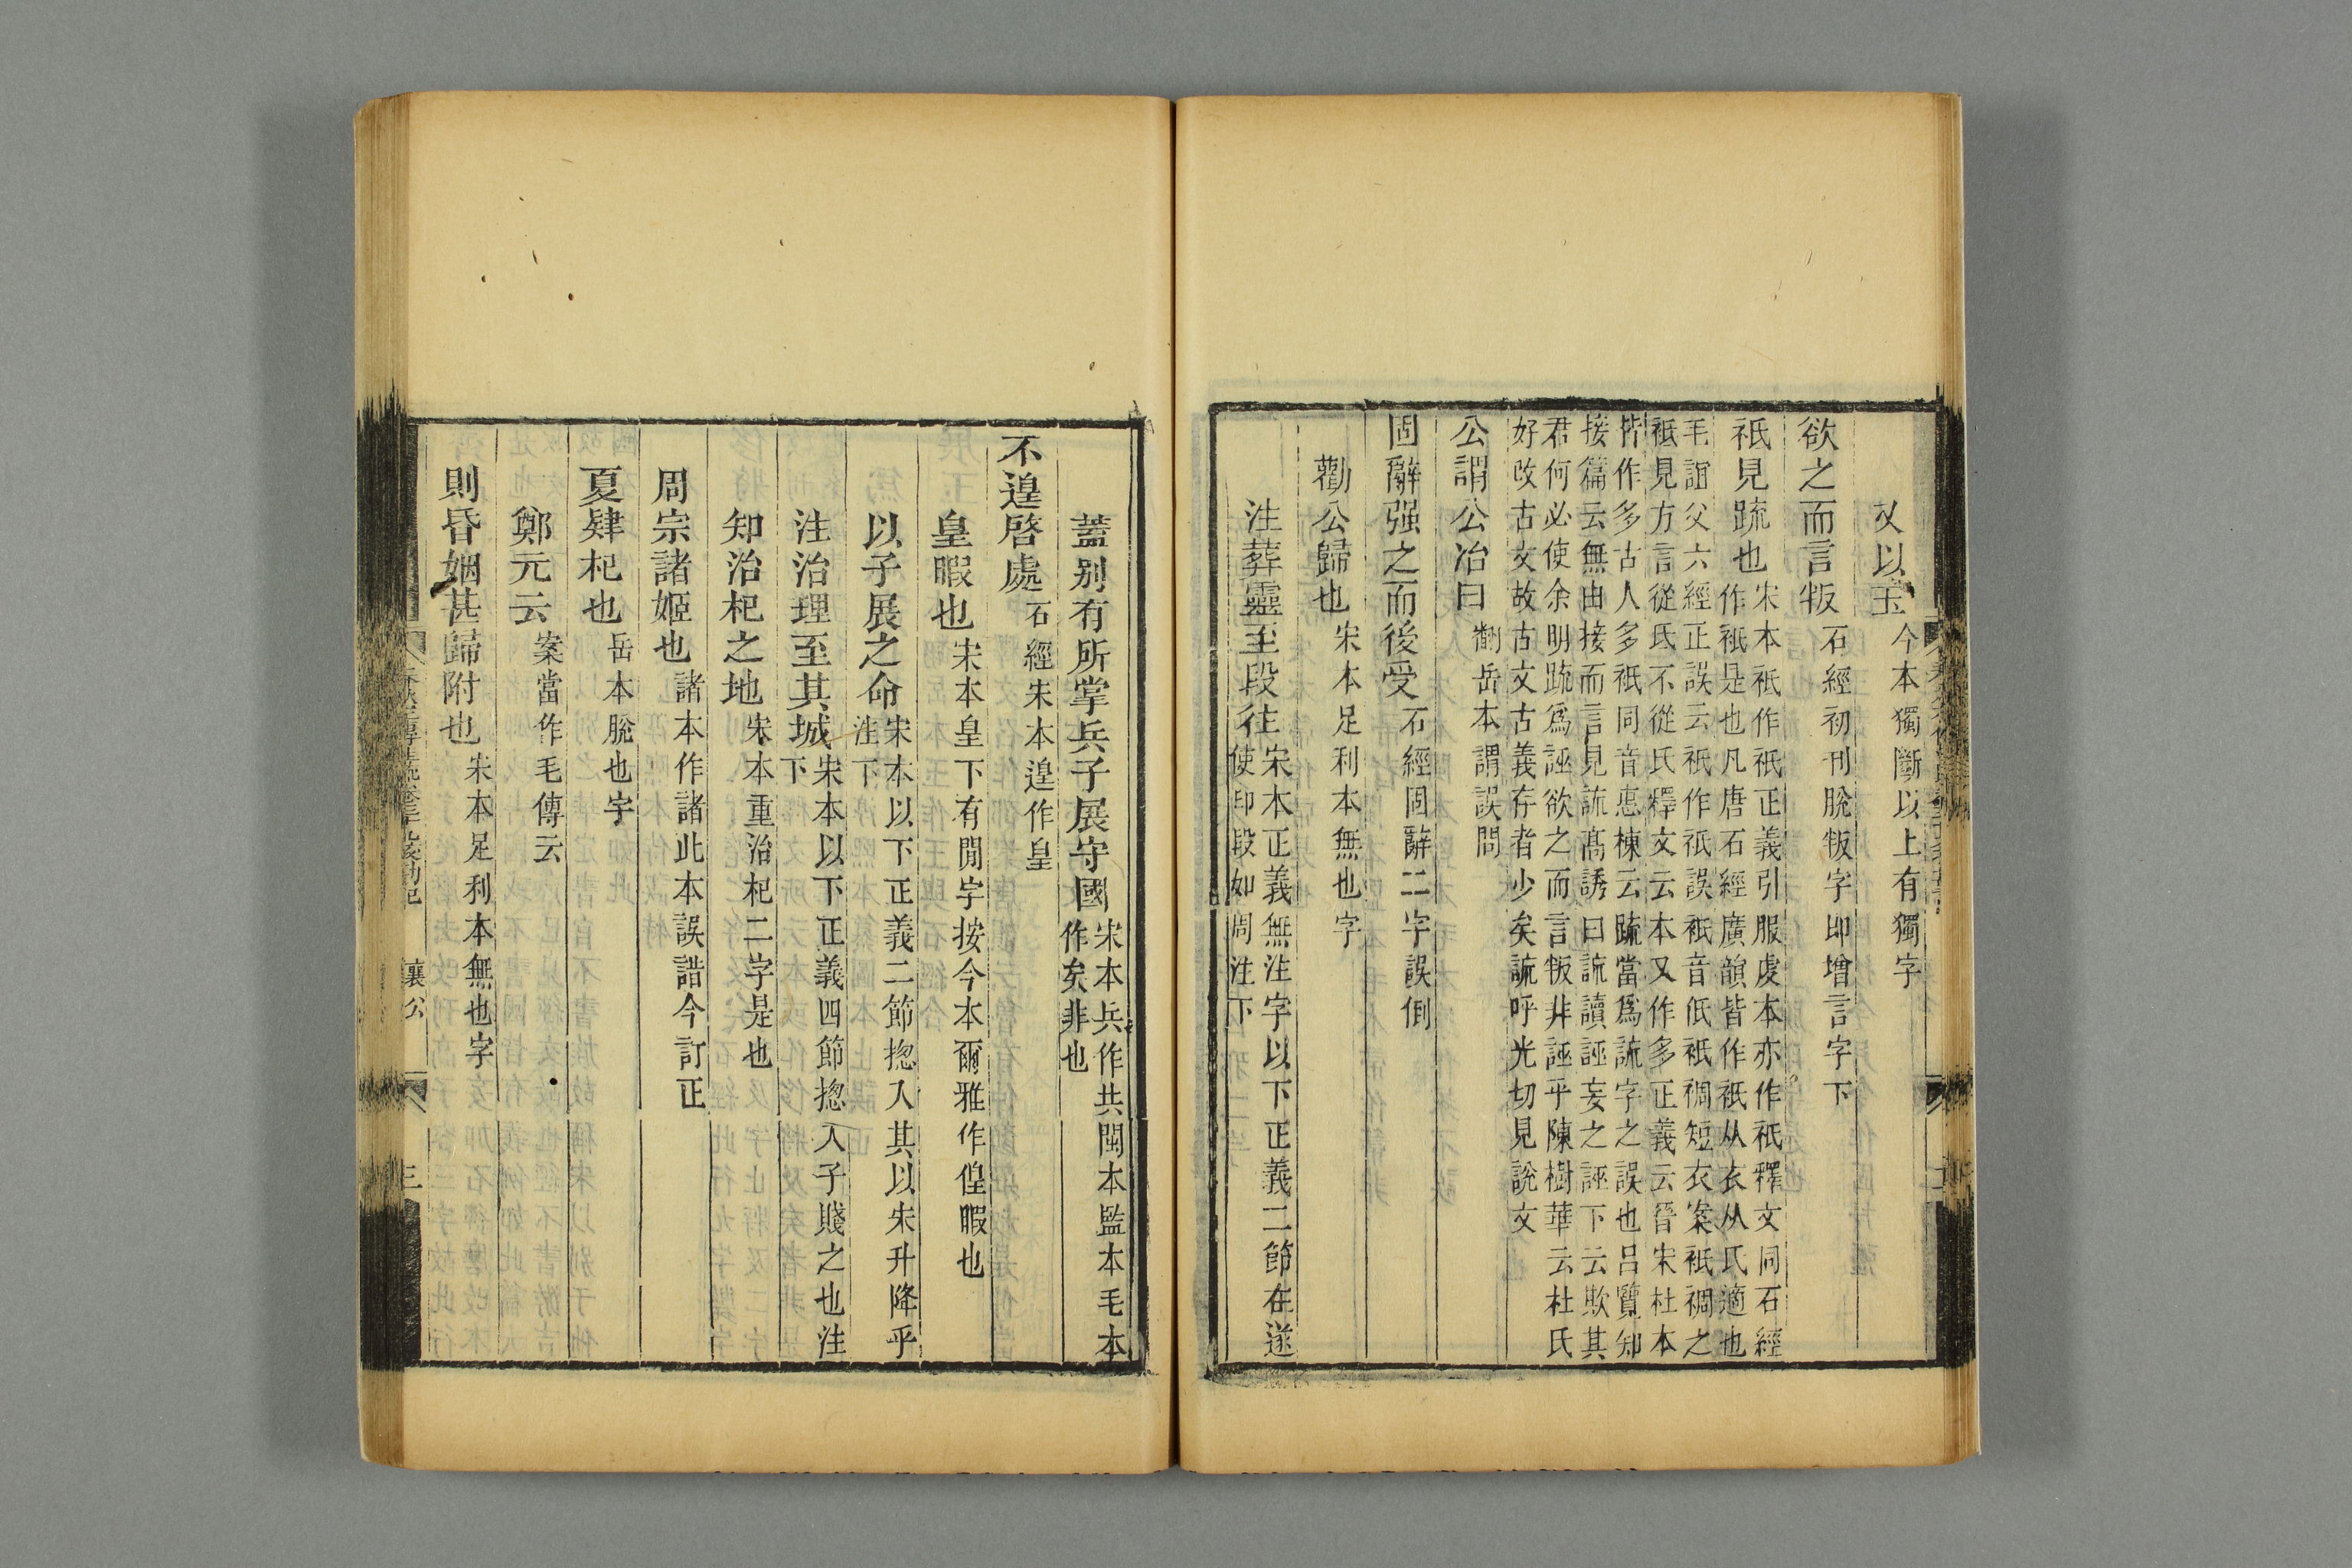 又以玉今本獨斷以上有獨字
欲之而言叛石經初刊脫叛字即增言字下
祇見疏也宋本祇作祇正義引服虔本亦作祇釋文同石經
作祇是也凡唐石經廣韻皆作祇从衣从氏適也
毛誼父六經正誤云祇作祇誤祇音低祇裯短衣案祇裯之
祇見方言從氐不從氏釋文云本又作多正義云晉宋杜本
皆作多古人多祇同音惠棟云疏當爲䟽字之誤也呂覽知
接篇云無由接而言見䛏高誘曰䛏讀誣妄之誣下云欺其
君何必使余明疏爲誣欲之而言叛非誣乎陳樹華云杜氏
好改古文故古文古義存者少矣䛏呼光切見說文
公謂公冶曰劃岳本謂誤問
固辭强之而後受石經固辭二字誤倒
勸公歸也宋本足利本無也字
注葬靈至段往宋本正義無注字以下正義二節在遂
使印段如周注下
蓋别有所掌兵子展守國宋本兵作共閩本監本毛本
作矣非也
不遑啓處石經宋本遑作皇
皇暇也宋本皇下有閒字按今本爾雅作偟暇也
以子展之命宋本以下正義二節揔入其以宋升降乎
注下
注治理至其城宋本以下正義四節揔入子賤之也注
下
知治杞之地宋本重治杞二字是也
周宗諸姬也諸本作諸此本誤諎今訂正
夏肄杞也岳本脫也字
鄭元云案當作毛傳云
則昏姻甚歸附也宋本足利本無也字
襄公
三